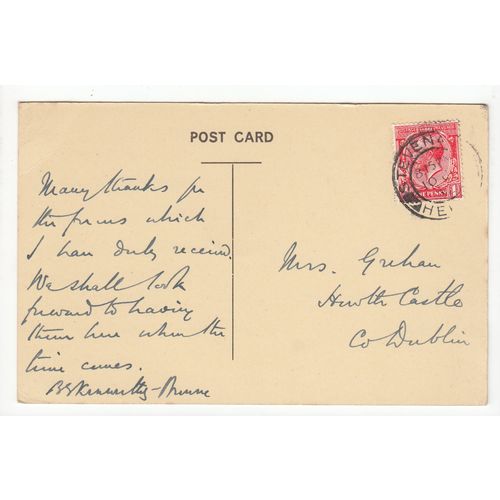 POST CARD
Many thanks for
the forms which
I have duly received.
We shall look
forward to having
them here when the
time comes.
Kenworthy-Browne
Mrs. Grehan
Howth Castle
Co Dublin
STEVEN
HE
PENNY